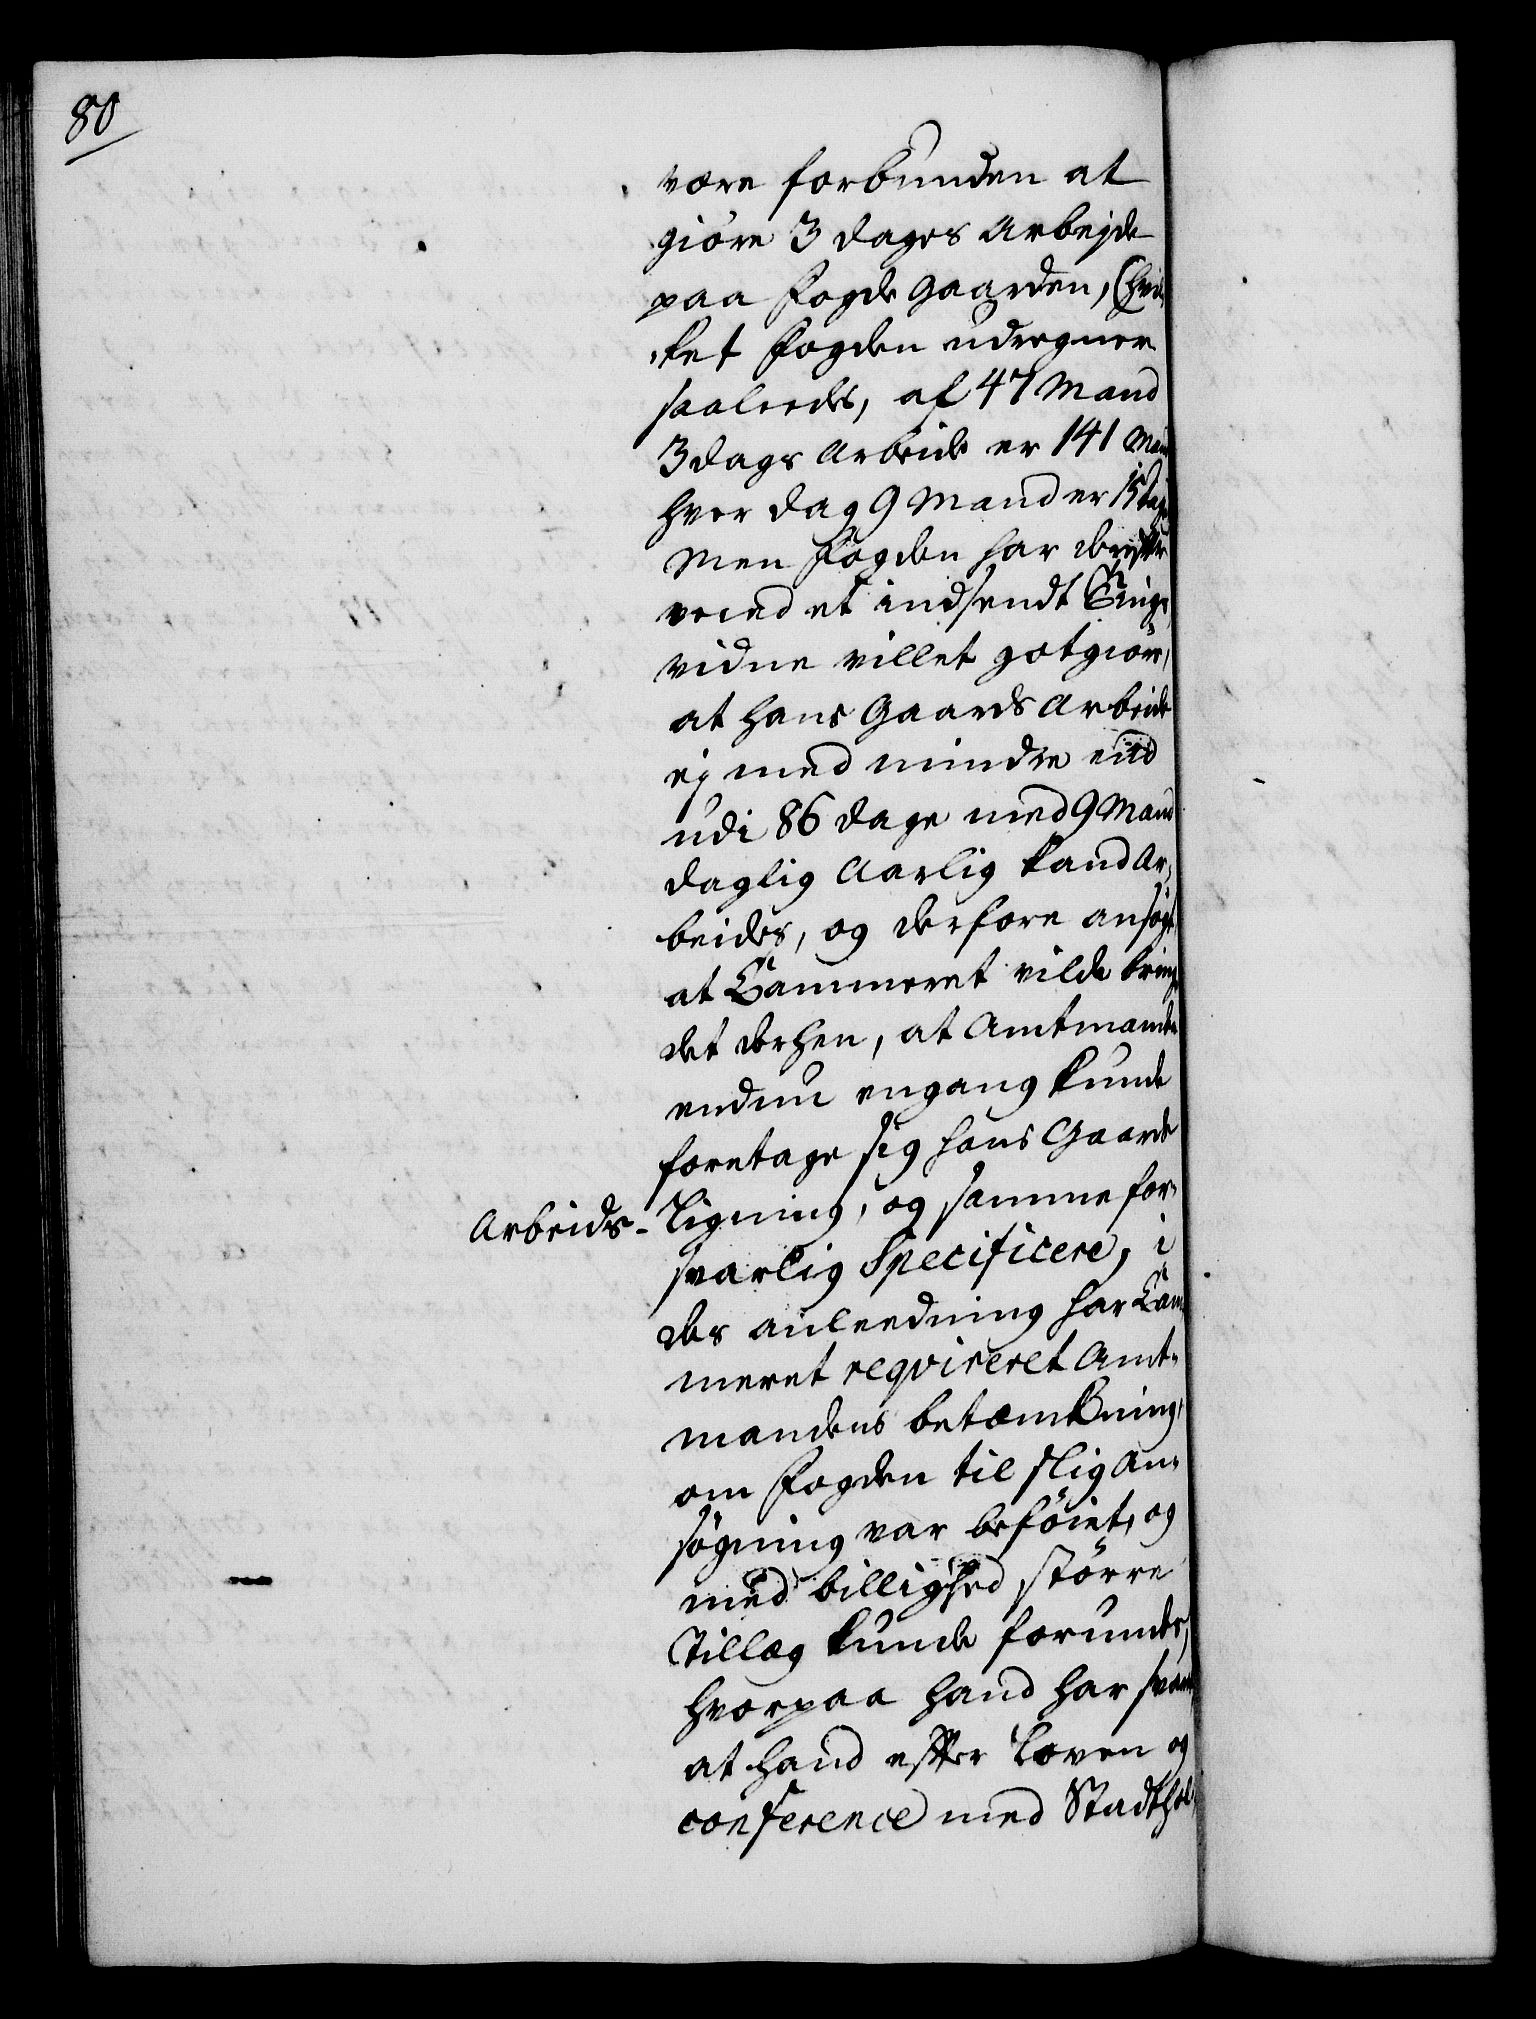 80
være forbunden at
giøre 3 dages Arbejde
paa Fogde Gaarden, (hvil,
ket Fogden udregner
saaledes, af 47 Mand
3 dags Arbeide er 141 Man
hver dag 9 Mand er 15 dage
Men Fogden har derefter
veed et indsendt Tings,
vidne villet gotgiøre,
at hans Gaards Arbeide
ej med mindre end
udi 86 dage med 9 Mand
daglig Aarlig kand Ar,
beides, og derfore ansøgt,
at Cammeret vilde bringe
det derhen, at Amtmanden
endnu engang kunde
foretage sig hans Gaards
Arbeids- Ligning, og samme for,
svarlig Specificere, i
des anleedning har Cam,
meret reqvireret Amt,
mandens betænkning,
om Fogden til slig An,
søgning var beføiet, og
med billighed større
Tillæg kunde forundes,
hvorpaa hand har svaret,
at hand efter Loven og
conference med Stadthol,